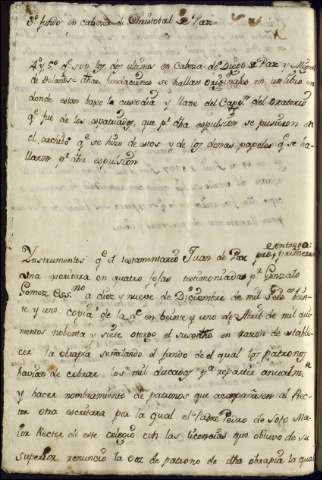 3º fundo en cabeza de Christobal de Paz
4º y 5º q.e son los dos ultimos en Cabeza de Diego de Paz y Miguel
de dhas fundaciones se hallan originales en un libro en
donde estan baxo la custodia y llave del Capp.n del oratorio
q.e fue de los expatriados, que p.r dha expulsion se pusieron en
el archibo q.e se hizo de esos y de los demas papeles q.e se ha-
llaron p.r dha expulsion
entrega:
Ynstrumentos q.e el testamentario Juan de Paz por primera
una escritura en quatro fojas testimoniadas p.r Gonzalo
Gomez Ess.no a diez y nueve de Diciembre de mil
y una copia de la q.e en veinte y uno de Abril de mil qui
nientos nobenta y siete otorgó el susodho en razon de estable
cer la obrapia señalando el fundo de el qual los patronos
havian de cobrar los mil ducados y repartir anualm.te
y hacer nombramiento de patronos que acompañasen al Rec
tor otra escritura por la qual el Padre Pedro de Soto Ma
ior Rector de este colegio con las licencias que obtuvo de su
superior renunció la voz de patrono de dha obrapia la qual